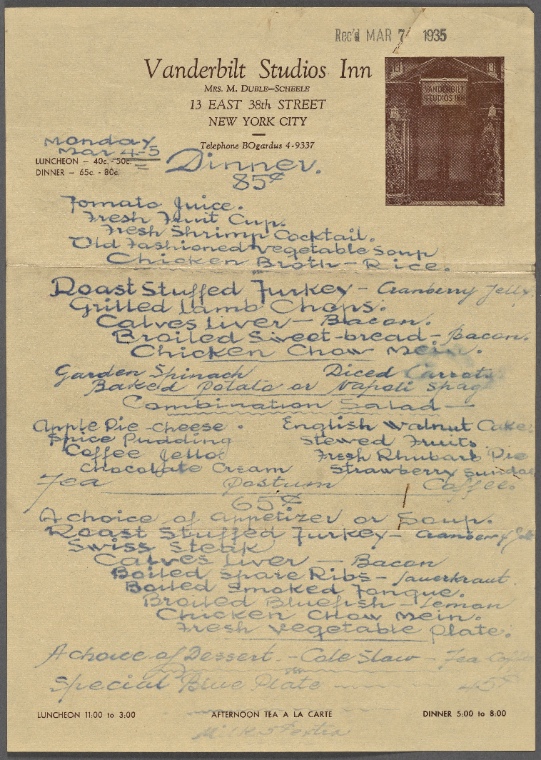 Rec'd MAR 7 1935
Vanderbilt Studios Inn
MRS. M. DUBLE-SCHEELE
13 EAST 38th STREET
NEW YORK CITY
Telephone BOgardus 4-9337
VANDERBILT
STUDIOS INN
Monday
Mar 4-5
LUNCHEON - 40c. 50c.
DINNER - 65c. - 80c.
Dinner.
85¢
Tomato Juice.
Fresh Fruit Cup.
Fresh Shrimp Cocktail.
Old Fashioned Vegetable Soup
Chicken Broth - Rice.
Roast Stuffed Turkey - Cranberry Jelly
Grilled Lamb Chops.
Calves Liver - Bacon.
Broiled Sweet-bread - Bacon.
Chicken Chow Mein.
Garden Spinach Diced Carrots
Baked Potato or Napoli Spag
Combination Salad
Apple Pie - Cheese. English Walnut Cake
Spice Pudding Stewed Fruits
Coffee Jello Fresh Rhubarb Pie
Chocolate Cream Strawberry Sundae
Tea Postum Coffee.
65¢
A choice of Appetizer or Soup.
Roast Stuffed Turkey - Cranberry Jell
Swiss Steak
Calves Liver - Bacon
Boiled Spare Ribs - Sauerkraut.
Boiled Smoked Tongue.
Broiled Bluefish - Lemon
Chicken Chow Mein.
Fresh Vegetable Plate.
A choice of Dessert. - Cole Slaw - Tea Coffee
Special Blue Plate 45¢
LUNCHEON 11:00 to 3:00 AFTERNOON TEA A LA CARTE DINNER 5:00 to 8:00